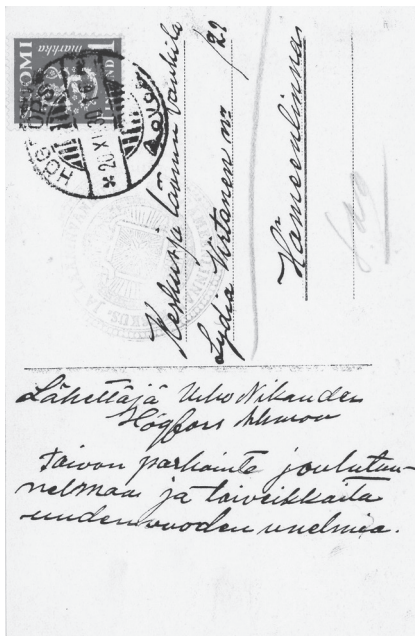 SUOMI
markka
1
HÖGFORS
20.XI.30
Keskus ja läänin vankila
Lydia Virtanen nr 122
Hämeenlinna
Lähettäjä Urho Nikander
Högfors
Toivon parhainta joulutun-
nelmaa ja toiveikkaita
uudenvuoden unelmia.